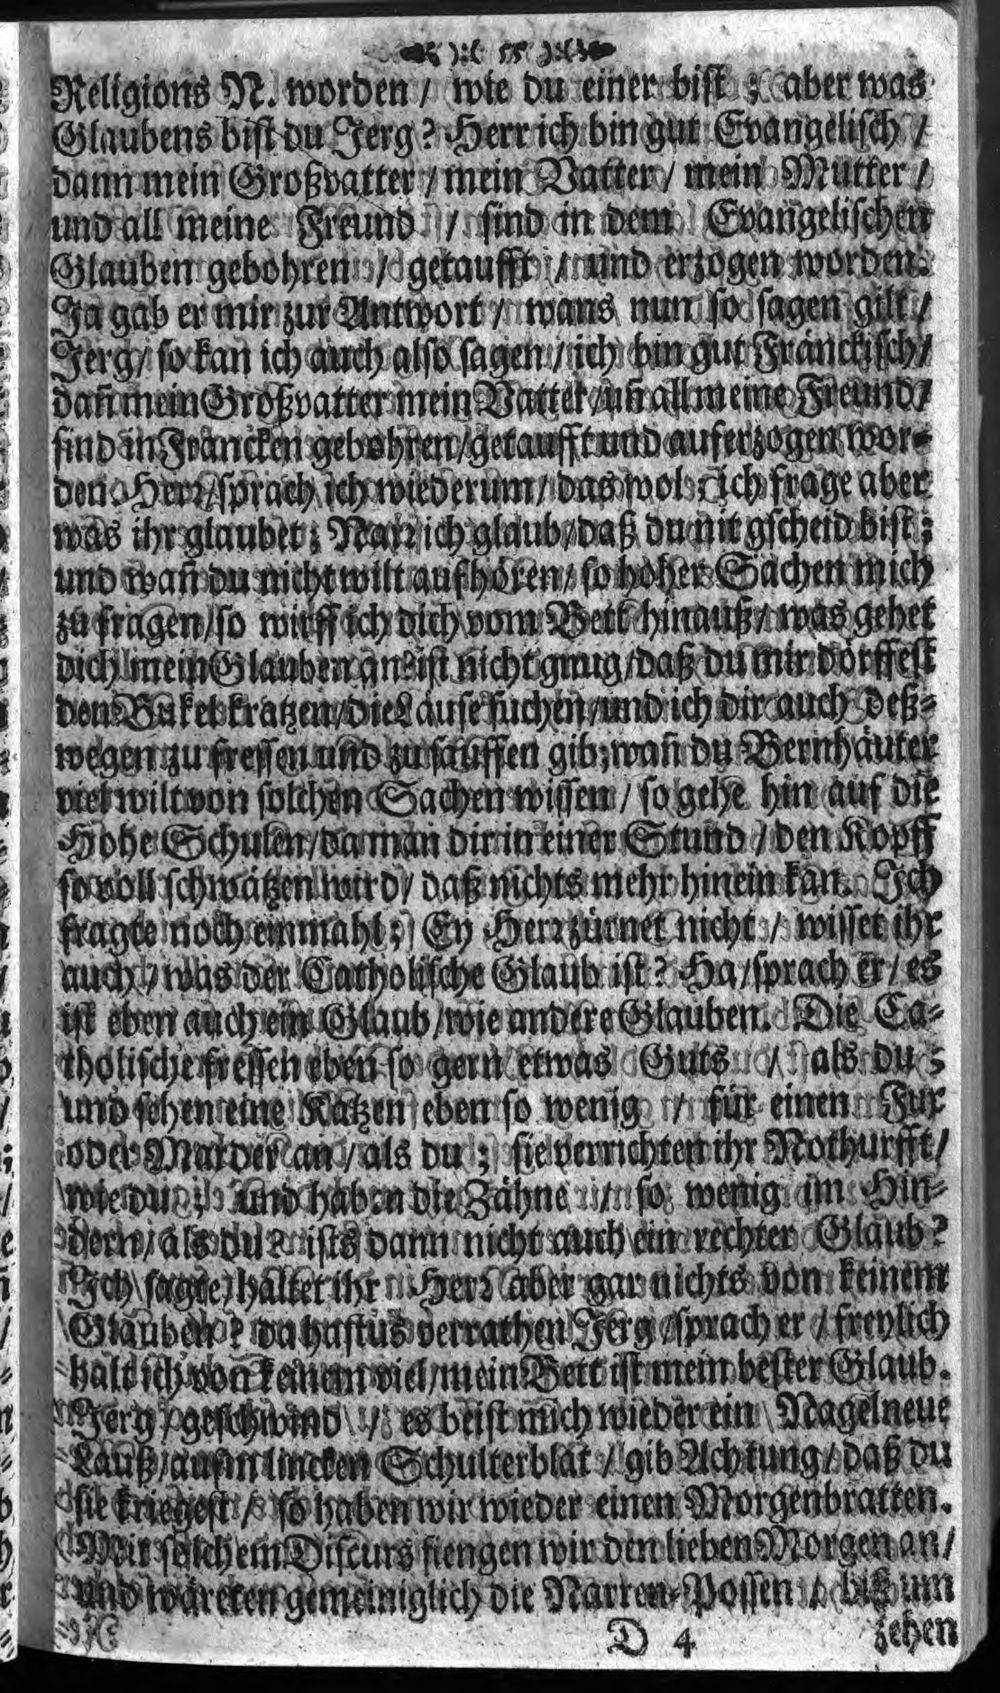 ):( 55 ):(
Religions N. worden / wie du einer bist ; aber was
Glaubens bist du Jerg? Herr ich bin gut Evangelisch /
dann mein Großvatter / mein Vatter / mein Mutter /
und all meine Freund / sind in dem Evangelischen
Glauben gebohren / getaufft / und erzogen worden.
Ja gab er mir zur Antwort / wans nun so sagen gilt /
Jerg / so kan ich auch also sagen / ich bin gut Fränckisch /
dañ mein Großvatter mein Vatter / uñ all meine Freund /
sind in Francken gebohren / getaufft und auferzogen wor-
den. Herr / sprach ich wiederum / das wol ; ich frage aber
was ihr glaubet ; Narr ich glaub / daß du nit gscheid bist ;
und wañ du nicht wilt aufhören / so hoher Sachen mich
zu fragen / so wirff ich dich vom Bett hinauß / was gehet
dich mein Glauben an? ist nicht gnug / daß du mir dörffest
den Bukel kratzen / die Läuse suchen / und ich dir auch deß-
wegen zu fressen und zu sauffen gib ; wañ du Bernhäuter
viel wilt von solchen Sachen wissen / so gehe hin auf die
Hohe Schulen / da man dir in einer Stund / den Kopff
so voll schwätzen wird / daß nichts mehr hinein kan. Ich
fragte noch einmahl ; Ey Herr zürnet nicht / wisset ihr
auch / was der Catholische Glaub ist? Ha / sprach er / es
ist eben auch ein Glaub / wie andere Glauben. Die Ca-
tholische fressen eben so gern etwas Guts / als du ;
und sehen eine Katzen eben so wenig / für einen Fux
oder Marder an / als du ; sie verrichten ihr Nothurfft /
wie du ; und haben die Zähne / so wenig im Hin-
dern / als du? ists dann nicht auch ein rechter Glaub?
Ich sagte / haltet ihr Herr aber gar nichts von keinem
Glauben? da hastus verrathen Jerg / sprach er / freylich
halt ich von keinem viel / mein Bett ist mein bester Glaub.
Jerg / geschwind / es beist mich wieder ein Nagelneue
Lauß / aufm lincken Schulterblat / gib Achtung / daß du
sie kriegest / so haben wir wieder einen Morgenbratten.
Mit solchem Discurs fiengen wir den lieben Morgen an /
und wäreten gemeiniglich die Narren-Possen / biß um
D 4 zehen